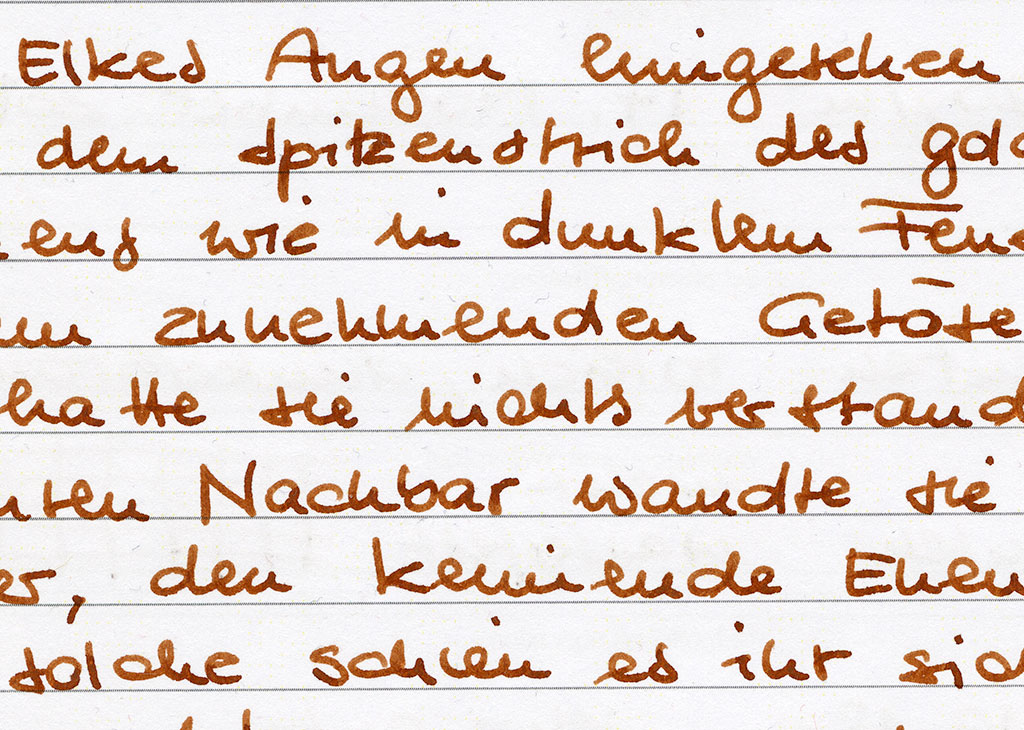 Elkes Augen hingesehen
dem Spitzenstrich des
wie in dunklem
zunehmenden Getöse
hatte sie nichts verstand
Nachbar wandte sie
den keimende
solche schien es ihr